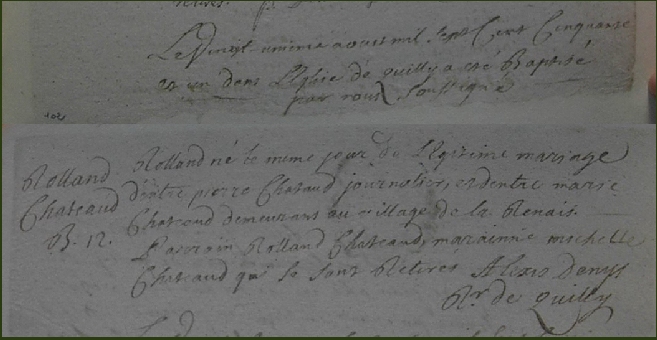 Le Vingt unime aoust mil Sept Cent Cinquante
et un dans L'Eglise de Quilly a eté Baptisé
par nous Soussigné
Rolland né le meme jour du Legitime mariage
Rolland
Chateaud
B. 12.
d'entre pierre Chataud journalier, et dentre marie
Chateaud demeurans au village de la Renais.
Parrain Rolland Chateaud, marainne michelle
Chateaud qui se sont Retirés Alexis Denys
Rr de Quilly